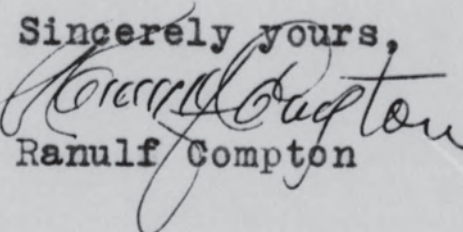 Sincerely yours,
Ranulf Compton
Ranulf Compton